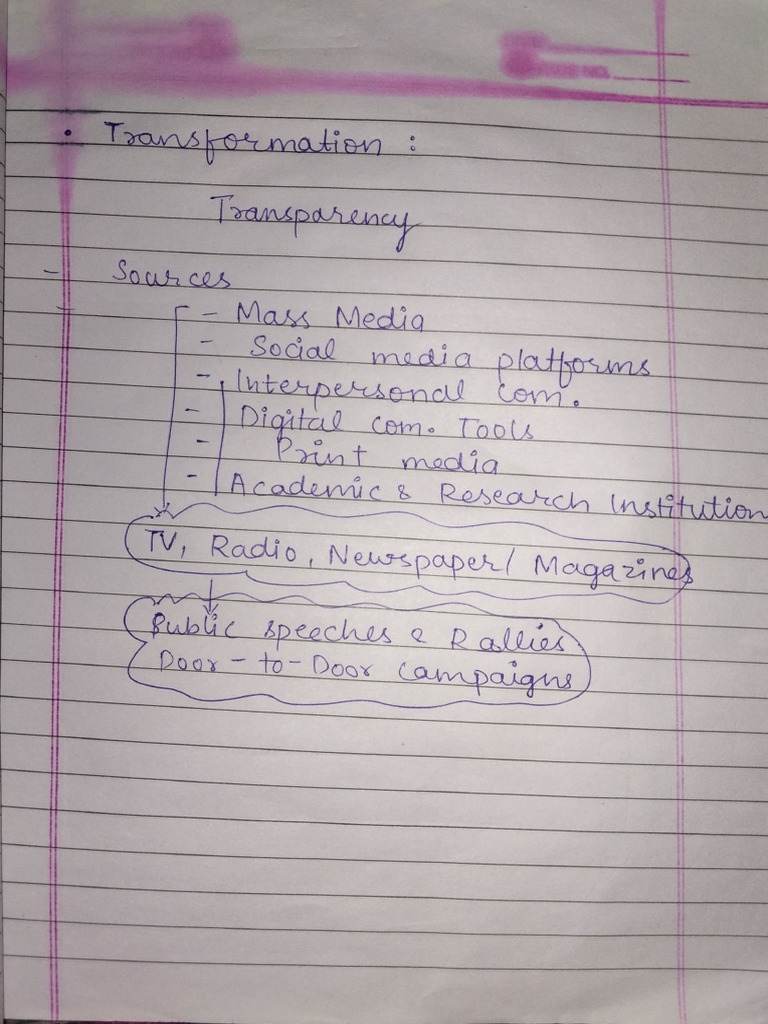 • Transformation :
Transparency
- Sources
- Mass Media
- Social media platforms
- Interpersonal com.
- Digital com. Tools
- Print media
- Academic & Research Institution
TV, Radio, Newspaper/ Magazines
Public speeches & Rallies
Door-to-Door campaigns